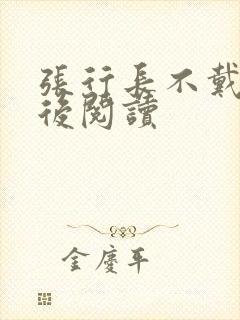 張行長不戴
後閱讀
金慶平